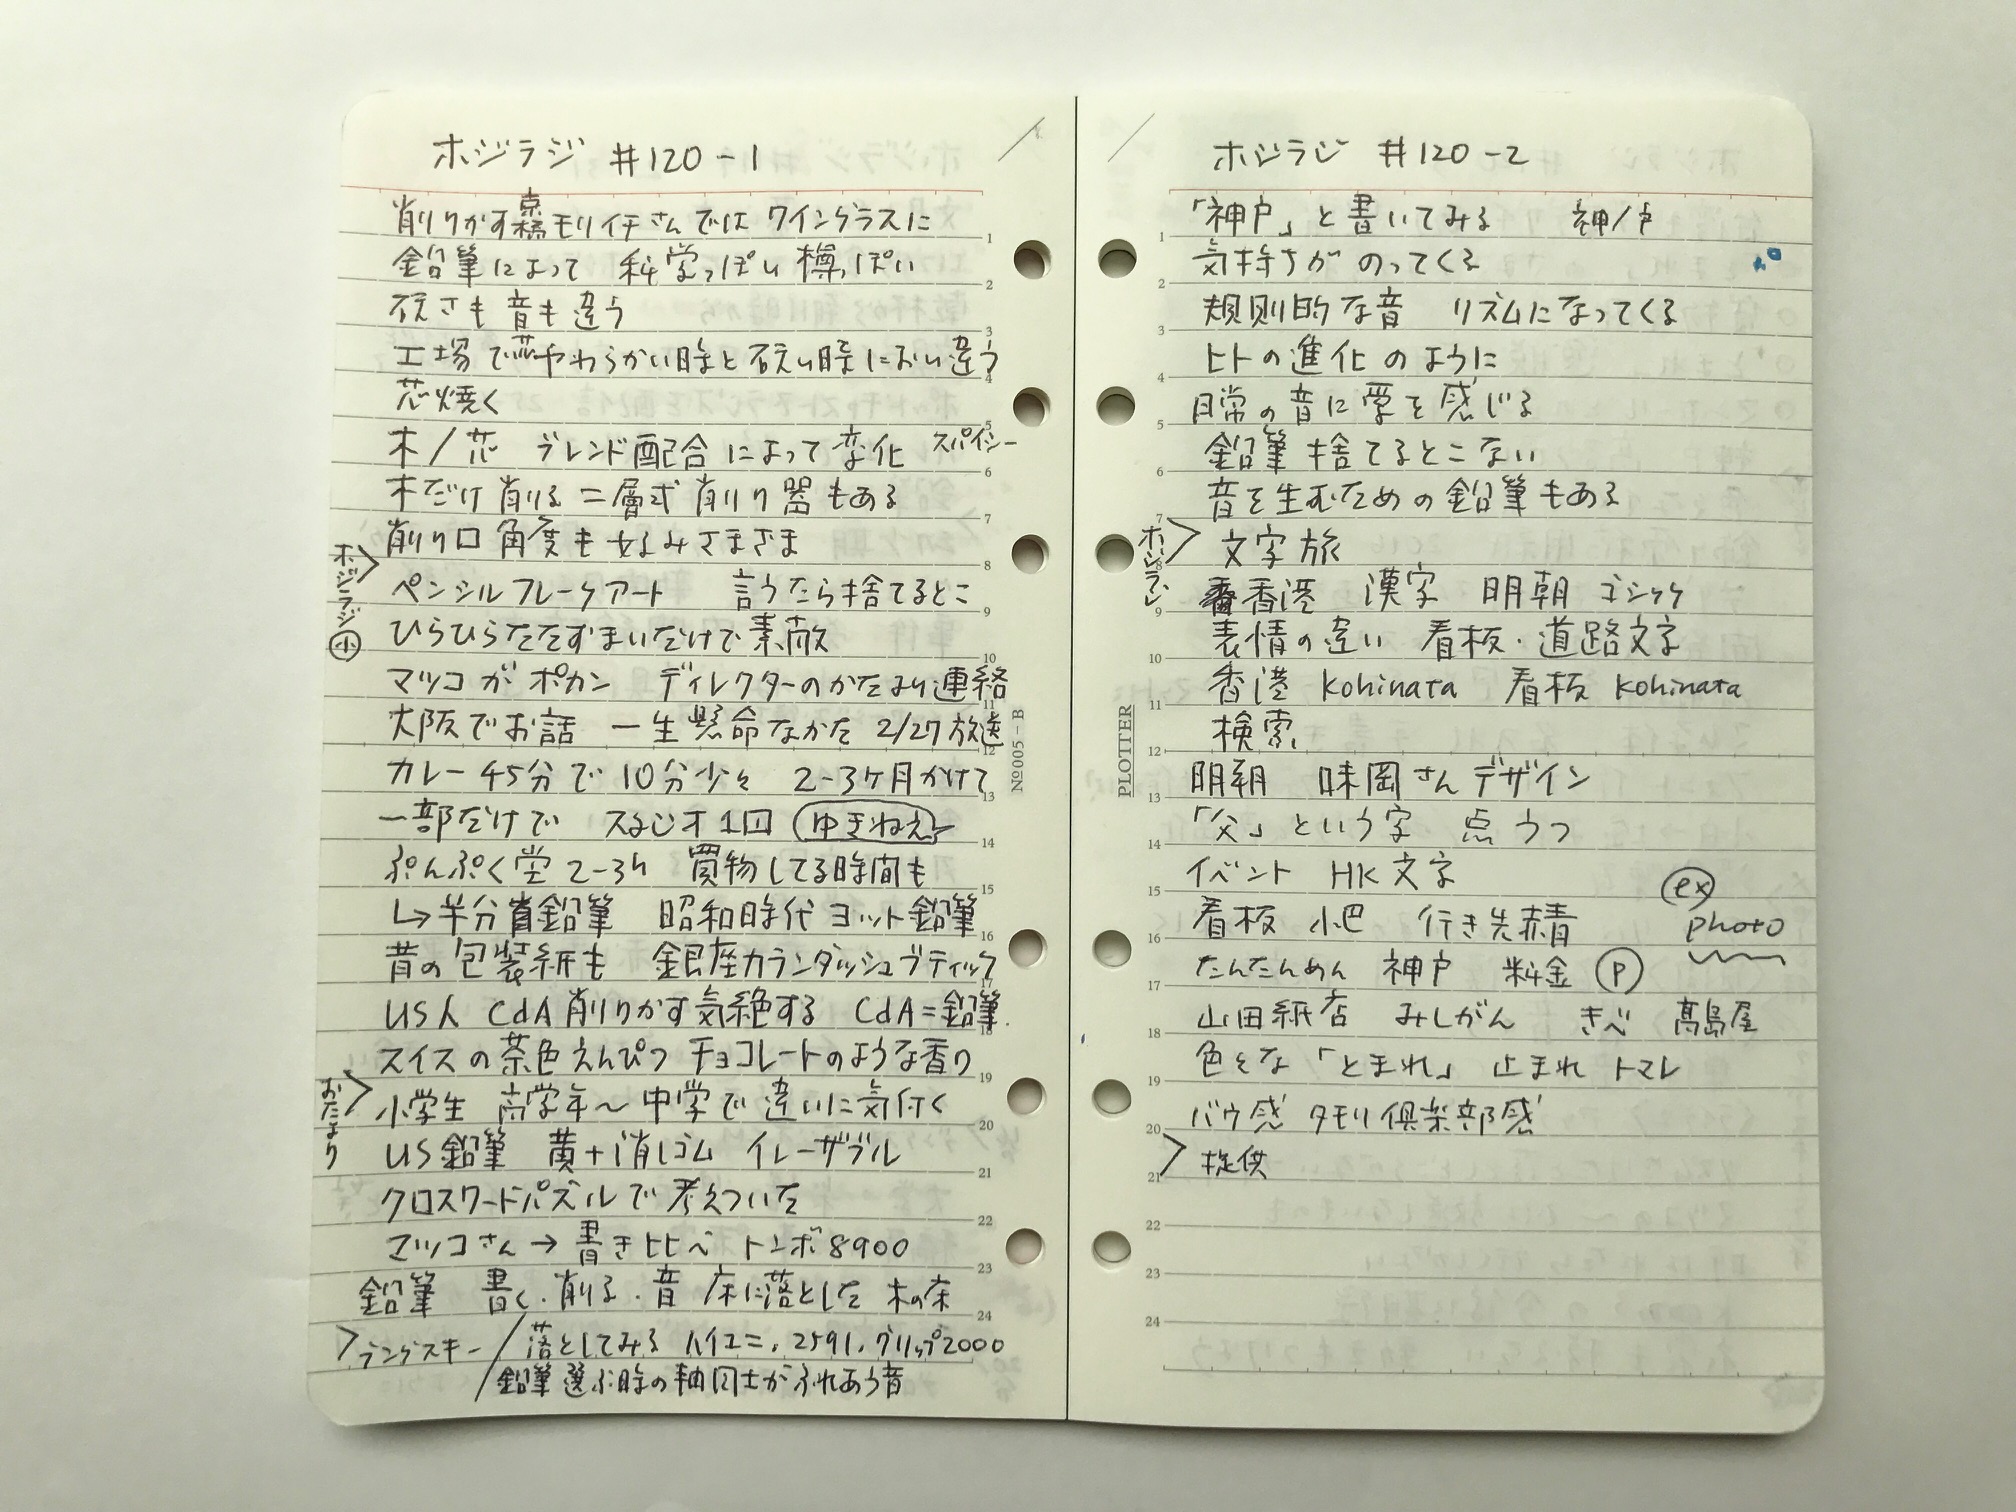 ホジラジ #120-1
削りかす京橋モリイチさんではワイングラスに
鉛筆によって 科学っぽい 樽っぽい
硬さも音も違う
工場で芯やわらかい時と硬い時におい違う
芯焼く
木/芯 ブレンド配合によって変化 スパイシー
木だけ削る二層式削り器もある
削り口角度も好みさまざま
ホジラジ 小
ペンシルフレークアート 言うたら捨てるとこ
ひらひらたたずまいだけで素敵
マツコがポカン ディレクターのかたより連絡
大阪でお話 一生懸命なかた 2/27放送
カレー45分で10分少々 2-3ヶ月かけて
一部だけで スタジオ1回 ゆきねえ
ぷんぷく堂2-3h 買物してる時間も
↳半分育鉛筆 昭和時代ヨット鉛筆
昔の包装紙も 銀座カランダッシュブティック
US人 CdA削りかす気絶する CdA=鉛筆
スイスの茶色えんぴつ チョコレートのような香り
おたより
小学生 高学年〜中学で違いに気付く
US鉛筆 黄+消しゴム イレーザブル
クロスワードパズルで考えついた
マツコさん→書き比べ トンボ8900
鉛筆 書く・削る・音 床に落とした 木の床
ラングスキー/落としてみる ハイユニ,2591,グリップ2000
/鉛筆選ぶ時の軸同士がふれあう音
№005-B
ホジラジ #120-2
「神戸」と書いてみる 神/戸
気持ちがのってくる
規則的な音 リズムになってくる
ヒトの進化のように
日常の音に愛を感じる
鉛筆捨てるとこない
音を生むための鉛筆もある
ホジラジ
文字旅
香港 漢字 明朝 ゴシック
表情の違い 看板・道路文字
香港 kohinata 看板 kohinata
検索
明朝 味岡さんデザイン
「父」という字 点うつ
イベント HK文字
看板 小巴 行き先赤青
ex photo
たんたんめん 神戸 料金 P
山田紙店 みしがん きべ 髙島屋
色々な「とまれ」 止まれ トマレ
バウ感 タモリ倶楽部感
提供
PLOTTER